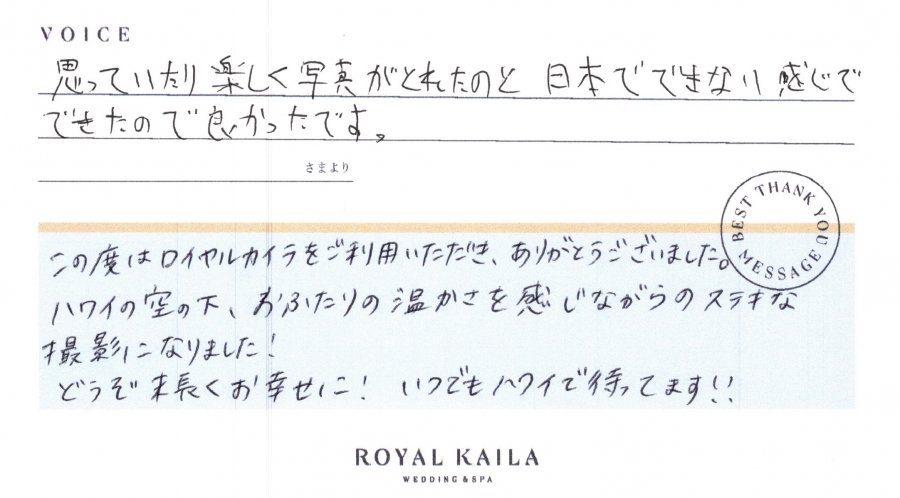 VOICE
思っていたり楽しく写真がとれたのと 日本でできない感じで
できたので良かったです。
さまより
BEST THANK YOU MESSAGE
この度はロイヤルカイラをご利用いただき、ありがとうございました。
ハワイの空の下、おふたりの温かさを感じながらのステキな
撮影になりました！
どうぞ末長くお幸せに！ いつでもハワイで待ってます！！
ROYAL KAILA
WEDDING & SPA